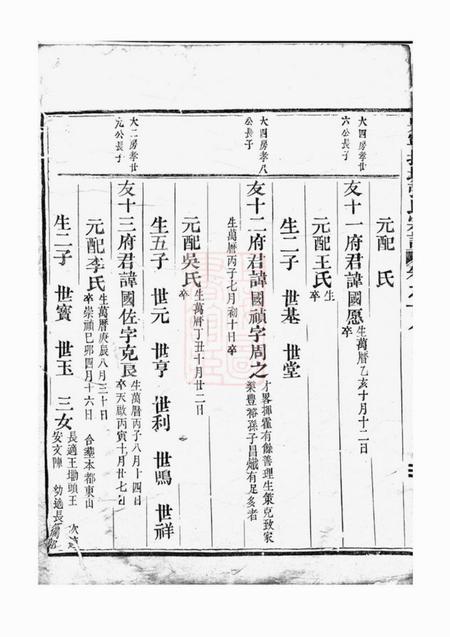 元配　氏
大四房孝廿
六公長子
友十一府君諱國愿生萬曆乙亥十月十二日
卒
元配王氏生
卒
生二子　世基　世堂
大四房孝八
公長子
友十二府君諱國禎字周之才畧揮霍有餘善理生策克致家
業豊裕孫子昌熾有足多者
生萬曆丙子七月初十日卒
元配吳氏生萬曆丁丑十月廿二日
卒
生五子　世元　世亨　世利　世鳴　世祥
大二房孝廿
元公長子
友十三府君諱國佐字克良生萬曆丙子八月十四日
卒天啟丙寅十月廿七日
元配李氏生萬曆庚辰八月三十日
卒崇禎己卯四月十六日　合塟本都東山
生二子　世寶　世玉　三女長適王塘頭王　次適
安文陳　幼適長